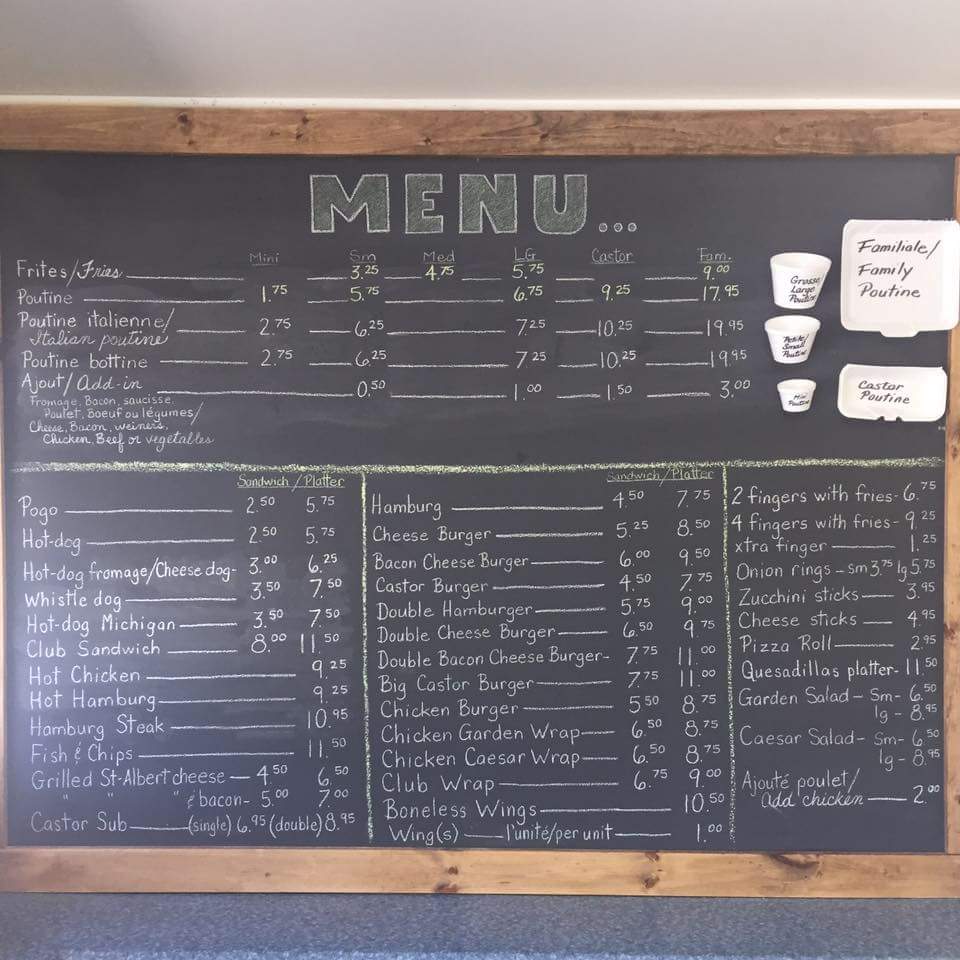 MENU...
Mini Sm Med LG Castor Fam.
Frites/Fries 3.25 4.75 5.75 9.00
Poutine 1.75 5.75 6.75 9.25 17.95
Poutine italienne/
Italian poutine 2.75 6.25 7.25 10.25 19.95
Poutine bottine 2.75 6.25 7.25 10.25 19.95
Ajout/Add-in 0.50 1.00 1.50 3.00
Fromage, Bacon, saucisse,
Poulet, Boeuf ou légumes/
Cheese, Bacon, weiners,
Chicken, Beef or vegetables
Grosse/
Large
Poutine
Familiale/
Family
Poutine
Petite/
Small
Poutine
Mini
Poutine
Castor
Poutine
Sandwich / Platter
Pogo 2.50 5.75
Hot-dog 2.50 5.75
Hot-dog fromage/Cheese dog- 3.00 6.25
Whistle dog 3.50 7.50
Hot-dog Michigan 3.50 7.50
Club Sandwich 8.00 11.50
Hot Chicken 9.25
Hot Hamburg 9.25
Hamburg Steak 10.95
Fish & Chips 11.50
Grilled St-Albert cheese — 4.50 6.50
" " " & bacon- 5.00 7.00
Castor Sub (single) 6.95 (double) 8.95
Sandwich / Platter
Hamburg 4.50 7.75
Cheese Burger 5.25 8.50
Bacon Cheese Burger 6.00 9.50
Castor Burger 4.50 7.75
Double Hamburger 5.75 9.00
Double Cheese Burger 6.50 9.75
Double Bacon Cheese Burger- 7.75 11.00
Big Castor Burger 7.75 11.00
Chicken Burger 5.50 8.75
Chicken Garden Wrap 6.50 8.75
Chicken Caesar Wrap 6.50 8.75
Club Wrap 6.75 9.00
Boneless Wings 10.50
Wing(s) — l'unité/per unit 1.00
2 fingers with fries- 6.75
4 fingers with fries- 9.25
xtra finger 1.25
Onion rings - sm 3.75 lg 5.75
Zucchini sticks 3.95
Cheese sticks 4.95
Pizza Roll 2.95
Quesadillas platter- 11.50
Garden Salad - Sm- 6.50
lg - 8.95
Caesar Salad- Sm- 6.50
lg - 8.95
Ajouté poulet/
add chicken 2.00